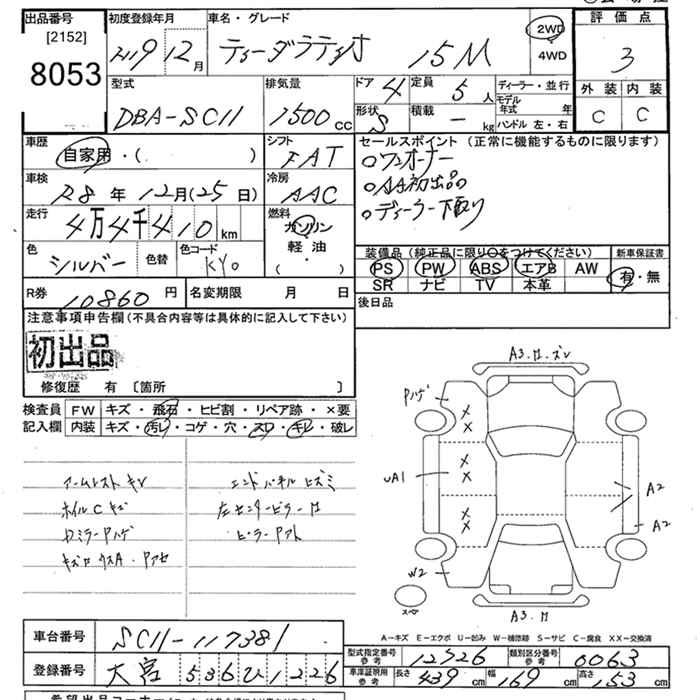 出品番号
[2152]
8053
初度登録年月
H19年12月
車名・グレード
ティーダラティオ 15M
2WD
4WD
評価点
3
外装 内装
C C
型式
DBA-SC11
排気量
1500cc
ドア 4
定員 5人
形状 S
積載 － kg
ディーラー・並行
モデル年式 年
ハンドル 左・右
車歴
自家用・( )
シフト
FAT
セールスポイント (正常に機能するものに限ります)
○ワンオーナー
○AA初出品
○ディーラー下取り
車検
R8年12月(25日)
冷房
AAC
走行
4万4千410km
燃料
ガソリン
軽油
( ・ )
色
シルバー
色替
色コード
KY0
装備品 (純正品に限り○をつけてください)
PS PW ABS エアB AW
SR ナビ TV 本革
新車保証書
有・無
R券 10860円
名変期限 月 日
後日品
注意事項申告欄(不具合内容等は具体的に記入して下さい)
初出品
修復歴 有 〔箇所 〕
検査員
記入欄
FW キズ・飛石・ヒビ割・リペア跡・×要
内装 キズ・汚レ・コゲ・穴・スレ・キレ・破レ
アームレスト キレ
ホイルC キズ
ドミラーPハゲ
エンドパネル ヒズミ
左センターピラー M
ピラー Pアト
A3.M.ズレ
Pハゲ
UA1
A2
A2
W2
スペア
A3.M
A－キズ E－エクボ U－凹み W－補修跡 S－サビ C－腐食 XX－交換済
車台番号
SC11-117381
登録番号
大宮 536 ひ 1226
型式指定番号
参考
12526
類別区分番号
参考
0063
車庫証明用
参考
長さ 439cm
幅 169cm
高さ 153cm